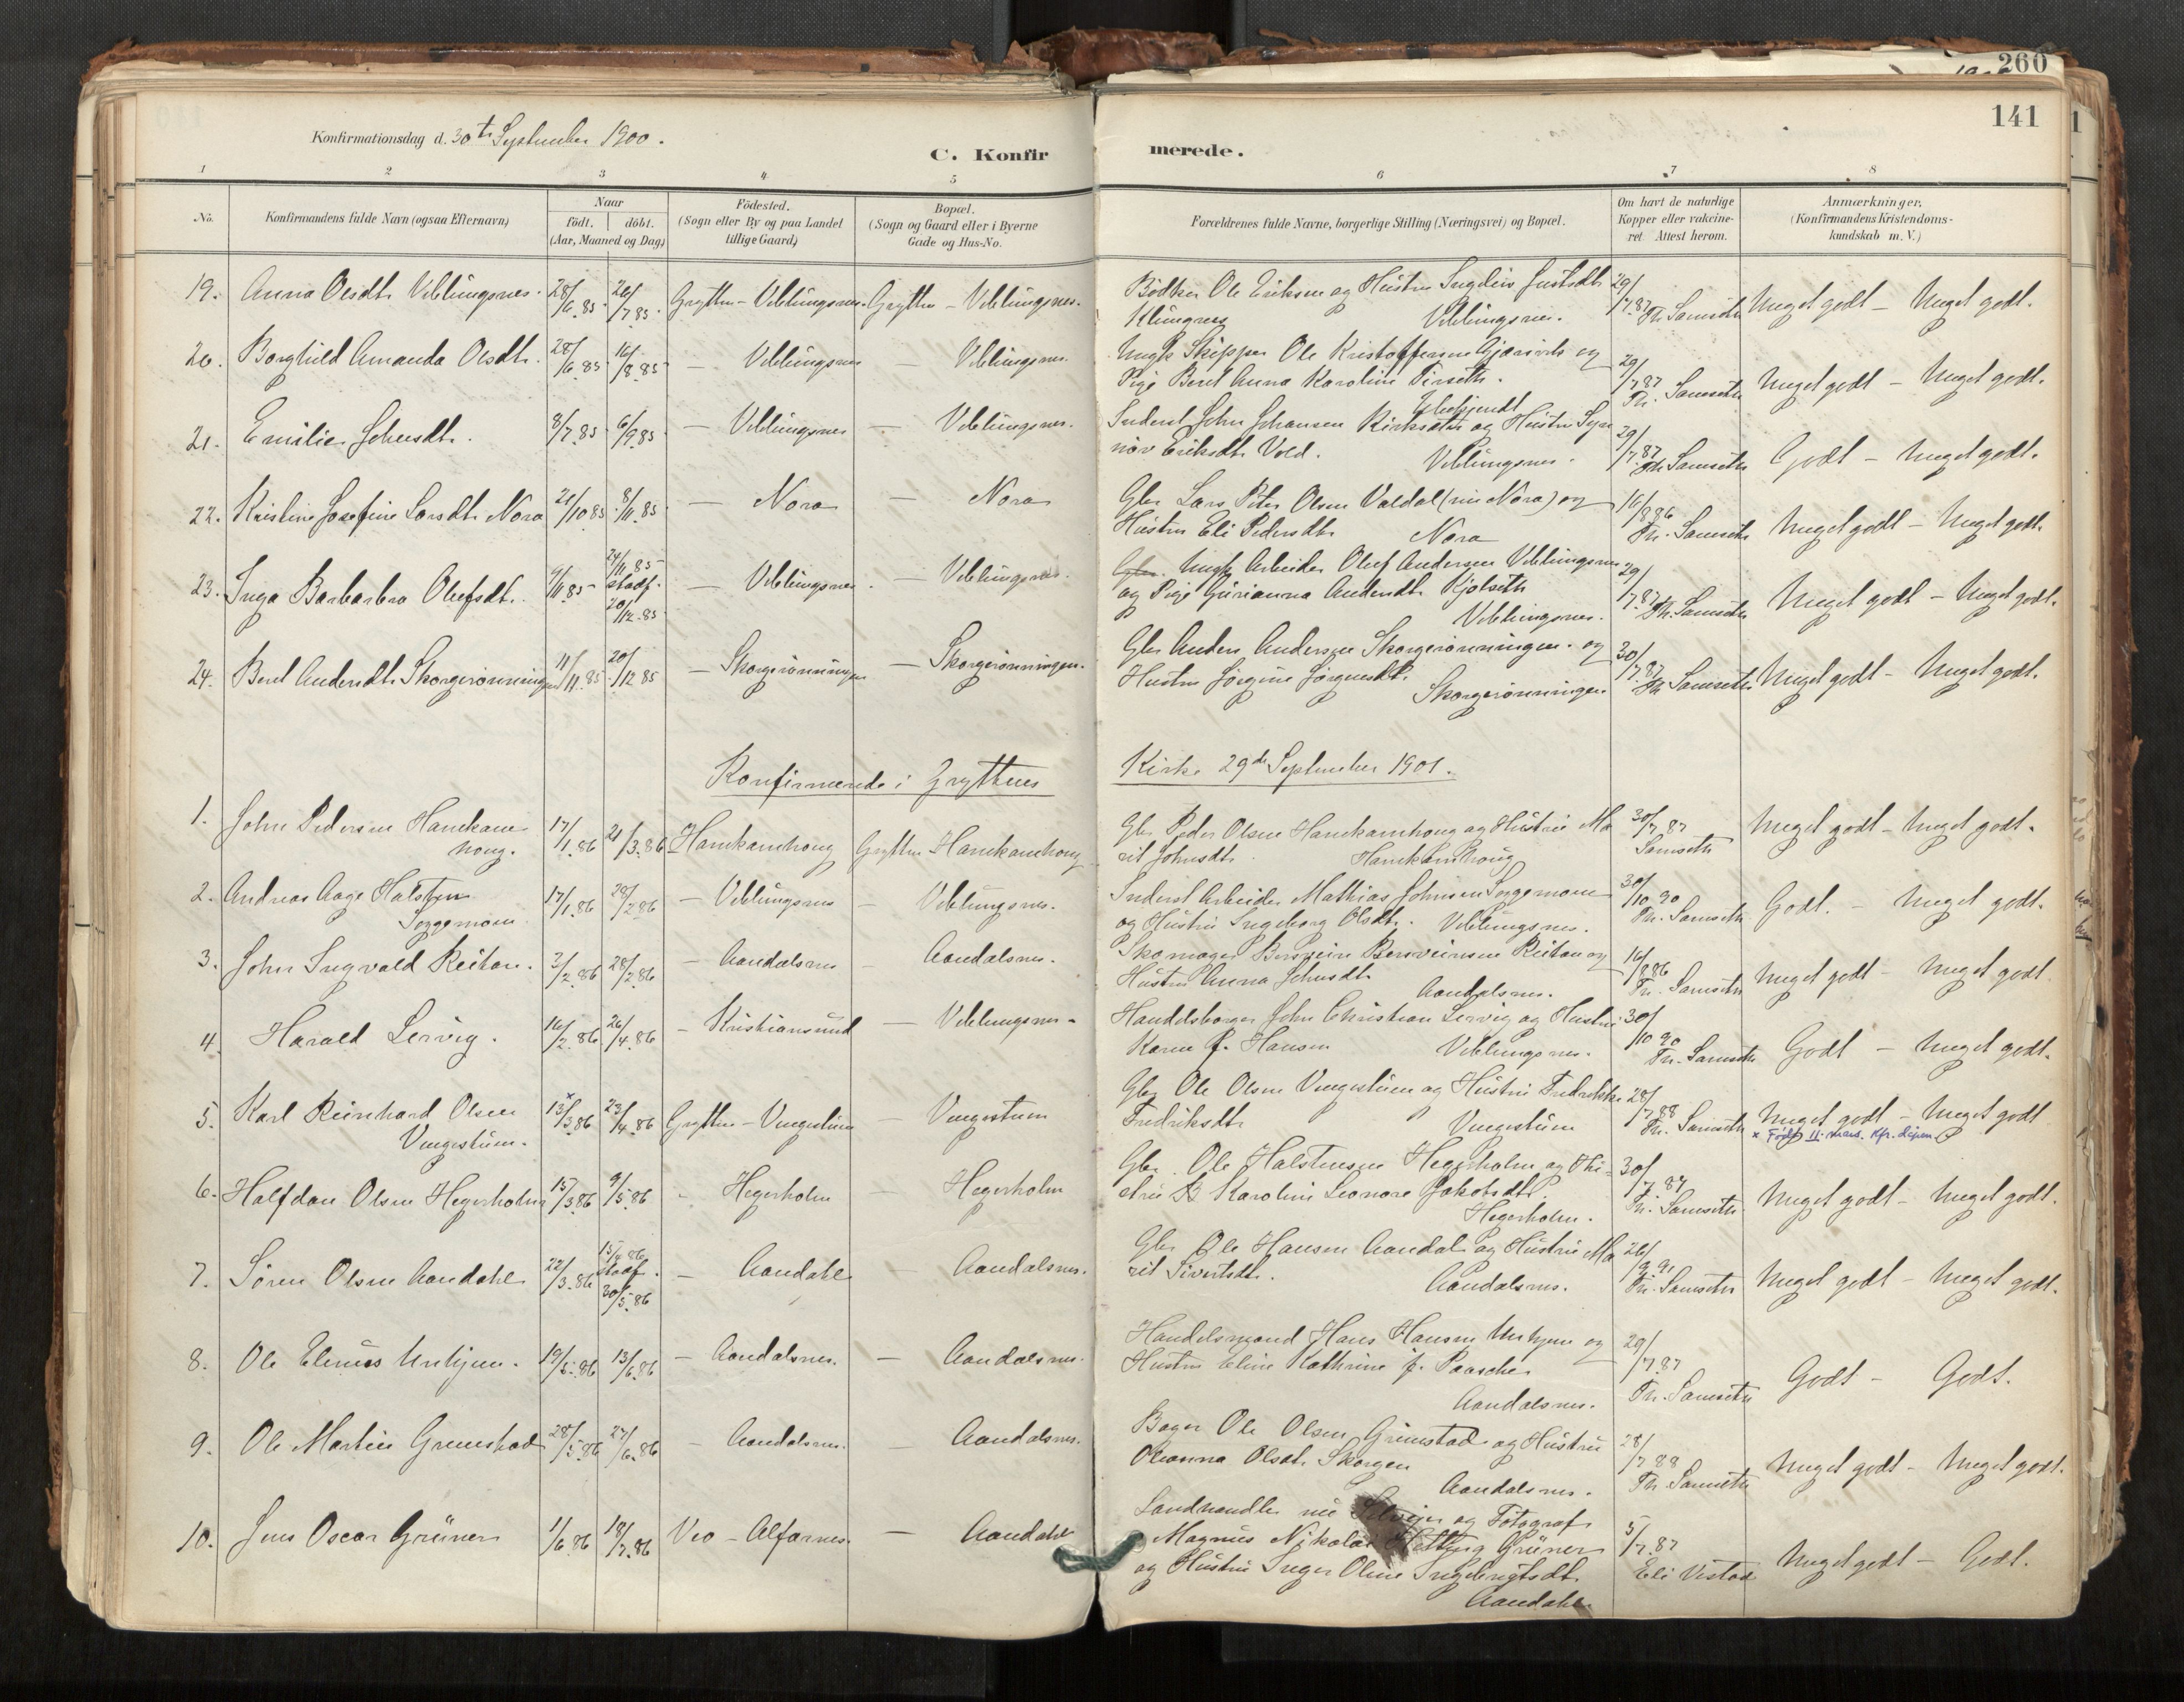 260
141
Konfirmationsdag d. 30te September 1900.
C. Konfirmerede.
1 2 3 4 5 6 7 8
No. Konfirmandens fulde Navn (ogsaa Efternavn) Naar født. døbt. (Aar, Maaned og Dag) Fødested. (Sogn eller By og paa Landet tillige Gaard) Bopæl. (Sogn og Gaard eller i Byerne Gade og Hus-No. Forældrenes fulde Navne, borgerlige Stilling (Næringsvei) og Bopæl. Om havt de naturlige Kopper eller vakcineret. Attest herom. Anmærkninger. (Konfirmandens Kristendomskundskab m. V.)
19. Anna Olsdtr Veblungsnes. 28/6 85 26/7 85 Grytten - Veblungsnes. Grytten - Veblungsnes. Bødker Ole Eriksen og Hustru Veblungsnes. 29/7 87 Th. Samseth Meget godt - Meget godt.
20. Borghild Amanda Olsdtr. 28/6 85 16/8 85 — Veblungsnes — Veblungsnes. Ungk. Skipper Ole Kristoffersen og
Pige Beret Anna Karoline 29/7 87 Th. Samseth Meget godt - Meget godt.
21. Emilie Johnsdtr. 8/7 85 6/9 85 — Veblungsnes — Veblungsnes. Inderst John Johansen og Hustru Syn
növ Eriksdtr Vold. Veblungsnes. 29/7 87 Th. Samseth Godt - Meget godt.
22. Kristine Josefine Larsdtr Nora 21/10 85 8/11 85 — Nora — Nora Gbr Lars Peter Olsen Valdal (nu Nora) og
Hustru Eli Pedersdtr Nora 16/8 86 Th. Samseth Meget godt - Meget godt.
23. Inga Barbarbra Olufsdtr. 9/11 85 24/11 85 stadf. 20/12 85 — Veblungsnes. — Veblungsnes. Gbr. Ungk Arbeider Oluf Andersen Veblungsnes
og Pige Gurianna Andersdtr Kjølseth
Veblungsnes. 29/7 87 Th. Samseth Meget godt - Meget godt.
24. Beret Andersdtr Skorgerønningen 11/11 85 20/12 85 — Skorgerønningen — Skorgerønningen. Gbr Anders Andersen Skorgerønningen. og
Hustru Jørgine Jørgensdtr.
Skorgerønningen 30/7 87 Th Samseth Meget godt - Meget godt.
Konfirmerede i Gryttens Kirke 29de September 1901.
1. John Pedersen Hanekam
houg. 17/1 86 21/3 86 Hanekamhoug Grytten Hanekamhoug Gbr Peder Olsen Hanekamhoug og Hustru Ma
rit Johnsdtr. Hanekamhoug 30/7 87 Samseth Meget godt - Meget godt.
2. Andreas Aage Halsten
Soggemoen 17/1 86 28/2 86 — Veblungsnes — Veblungsnes. Inderst Arbeider Mathias Johnsen Soggemoen
og Hustru Ingeborg Olsdtr. Veblungsnes. 30/10 90 Th. Samseth Godt. - Meget godt.
3. John Ingvald Reitan. 3/2 86 28/2 86 — Aandalsnes — Aandalsnes. Skomager Bersvein Bersveinsen Reitan og
Hustru Anna Johnsdtr Aandalsnes. 16/8 86 Th. Samseth Meget godt - Meget godt.
4. Harald Lervig. 16/2 86 26/4 86 — Kristiansund — Veblungsnes - Handelsborger John Christian Lervig og Hustru
Karen f. Hansen Veblungsnes. 30/10 90 Th. Samseth Godt - Meget godt.
5. Karl Reinhard Olsen
Vengestuen. x 13/3 86 23/4 86 Grytten - Vengestuen Vengestuen Gbr Ole Olsen Vengestuen og Hustru Fredrikke
Fredriksdtr Vengestuen 28/7 88 Th. Samseth Meget godt - Meget godt
x Født 11. mars.
6. Halfdan Olsen Hegerholm 15/3 86 9/5 86 — Hegerholm — Hegerholm Gbr Ole Halstensen Hegerholm og Hu-
stru Karoline Leonore Jakobsdtr.
Hegerholm. 30/7 87 Th. Samseth Meget godt - Meget godt.
7. Søren Olsen Aandahl 22/3 86 15/4 86 stadf. 30/5 86 — Aandahl Aandalsnes. Gbr Ole Hansen Aandal og Hustru Ma
rit Sivertsdtr. Aandalsnes. 26/9 91 Th. Samseth Meget godt - Meget godt.
8. Ole Elenius Unhjem. 19/5 86 13/6 86 — Aandalsnes. — Aandalsnes. Handelsmand Hans Hansen Unhjem og
Hustru Eline Kathrine f. Paasche
Aandalsnes. 29/7 87 Th. Samseth Godt - Godt.
9. Ole Martin Grimstad 28/5 86 27/6 86 — Aandalsnes. — Aandalsnes. Bager Ole Olsen Grimstad og Hustru
Oleanna Olsdtr Skorgen
Aandalsnes. 28/7 88 Th Samseth Meget godt - Meget godt.
10. Jens Oscar Grüner 1/6 86 18/7 86 Veo - Alfarnes. — Aandahl Landhandler nu og Fotograf
Magnus Nikolai Grüner
og Hustru Inger Oline Ingebrigtsdtr
Aandahl. 5/7 87 Eli Vestad Meget godt - Godt.